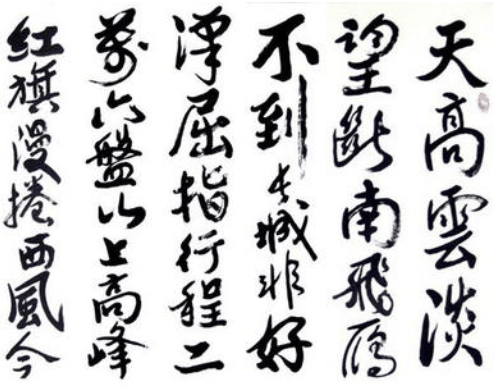 天高雲淡
望斷南飛雁
不到長城非好
漢屈指行程二
萬六盤山上高峰
紅旗漫捲西風今